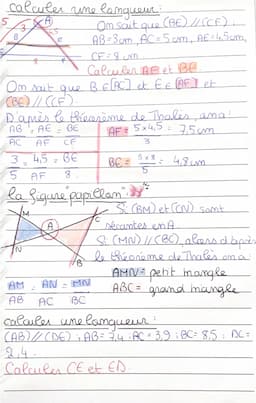 Calculer une longueur:
5 3 A
On sait que (BE) // (CF),
AB = 3cm, AC = 5cm, AE = 4,5cm,
CF = 8cm
Calculer AF et BE
On sait que B ∈ [AC] et E ∈ [AF] et
(BE) // (CF).
D'après le théorème de Thalès, on a:
AB = AE = BE
AC AF CF
AF = 5 x 4,5 = 7,5cm
3
3 = 4,5 = BE
5 AF 8.
BE = 3 x 8 = 4,8cm
5
la figure "papillon":
M C
A
N B
Si (BM) et (CN) sont
sécantes en A
Si (MN) // (BC), alors d'après
le théorème de Thalès on a
AM = AN = MN
AB AC BC
AMN = petit triangle
ABC = grand triangle
calculer une longueur:
(AB) // (DE); AB = 7,4; AC = 3,9; BC = 8,5; DC =
2,4.
Calculer CE et ED.